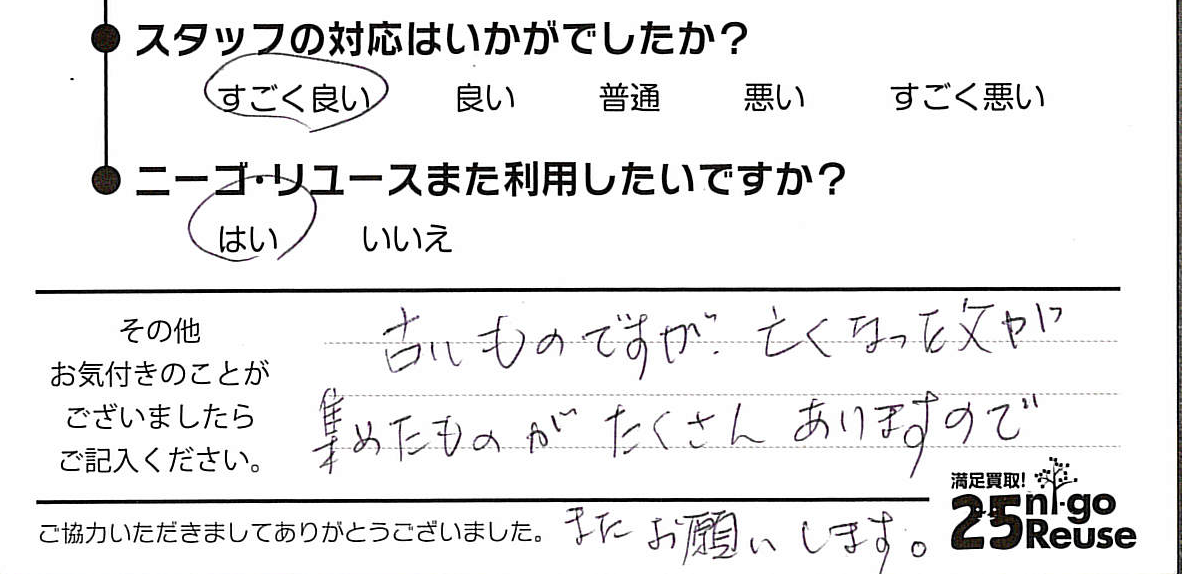 スタッフの対応はいかがでしたか?
すごく良い 良い 普通 悪い すごく悪い
ニーゴ・リユースまた利用したいですか?
はい いいえ
その他
お気付きのことが
ございましたら
ご記入ください。
古いものですが、亡くなった父が
集めたものがたくさんありますので
またお願いします。
ご協力いただきましてありがとうございました。
満足買取!
25 ni-go
Reuse